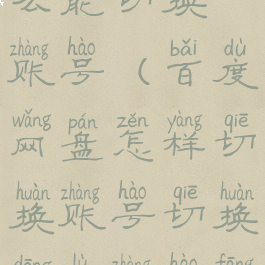 能切换
zhàng hào bǎi dù
账号(百度
wǎng pán zěn yàng qiē
网盘怎样切
huàn zhàng hào qiē huàn
换账号切换